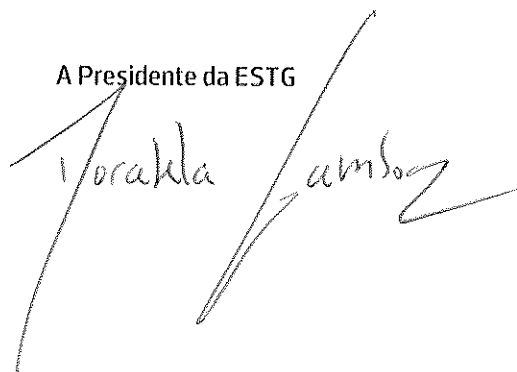 A Presidente da ESTG
Dorabela Gamboa